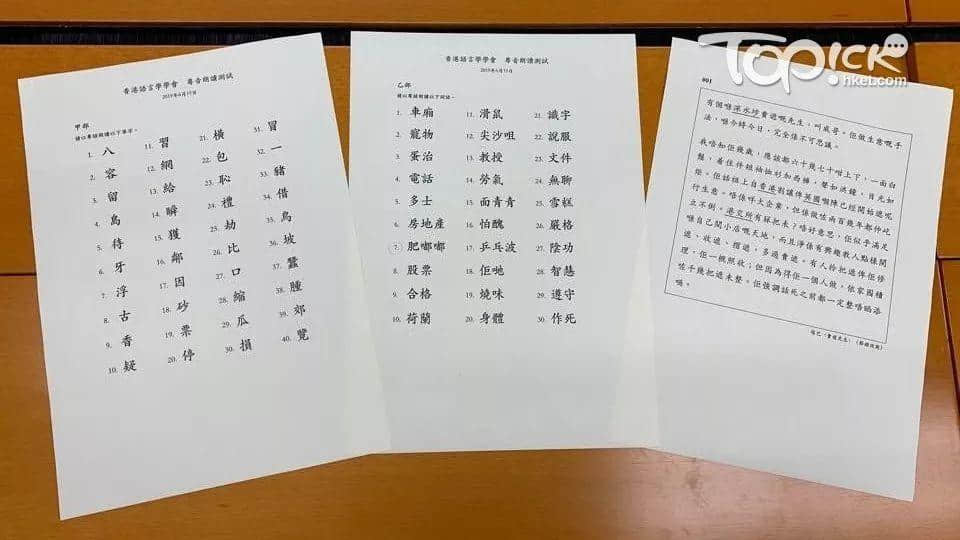 TOPick
hket.com
香港語言學學會 粵音朗讀測試
2019年6月15日
甲部
請以粵語朗讀以下單字。
1. 八 11. 習 21. 橫 31. 冒
2. 容 12. 網 22. 包 32. 一
3. 留 13. 給 23. 恥 33. 豬
4. 島 14. 瞬 24. 禮 34. 借
5. 待 15. 獲 25. 劫 35. 鳥
6. 牙 16. 鄰 26. 比 36. 坡
7. 浮 17. 因 27. 口 37. 蠶
8. 古 18. 砂 28. 縮 38. 腫
9. 香 19. 票 29. 瓜 39. 郊
10. 疑 20. 停 30. 損 40. 覽
香港語言學學會 粵音朗讀測試
2019年6月15日
乙部
請以粵語朗讀以下詞語。
1. 車廂 11. 滑鼠 21. 識字
2. 寵物 12. 尖沙咀 22. 說服
3. 蛋治 13. 教授 23. 文件
4. 電話 14. 勞氣 24. 無聊
5. 多士 15. 面青青 25. 雪糕
6. 房地產 16. 怕醜 26. 嚴格
7. 肥嘟嘟 17. 乒乓波 27. 陰功
8. 股票 18. 佢哋 28. 智慧
9. 合格 19. 燒味 29. 遵守
10. 荷蘭 20. 身體 30. 作死
001
有個喺深水埗賣遮嘅先生,叫威哥。佢做生意嘅手
法,喺今時今日,完全係不可思議。
我唔知佢幾歲,應該都六十幾七十咁上下,一面白
鬚,着住件短袖恤衫加西褲,聲如洪鐘,目光如
炬。佢話祖上自香港割讓俾英國嗰陣已經開始遮呢
行生意。唔係咩大企業,但係做咗兩百幾年都仲屹
立不倒。港交所有睇把未?唔好意思,佢似乎滿足
喺自己開小店嘅天地,而且淨係有興趣教人點樣開
遮、收遮、摺遮,多過賣遮。有人拎把遮俾佢修
理,佢一概照收;但因為得佢一個人做,依家囤積
咗千幾把遮未整。佢強調話死之前都一定整唔晒添
喎。